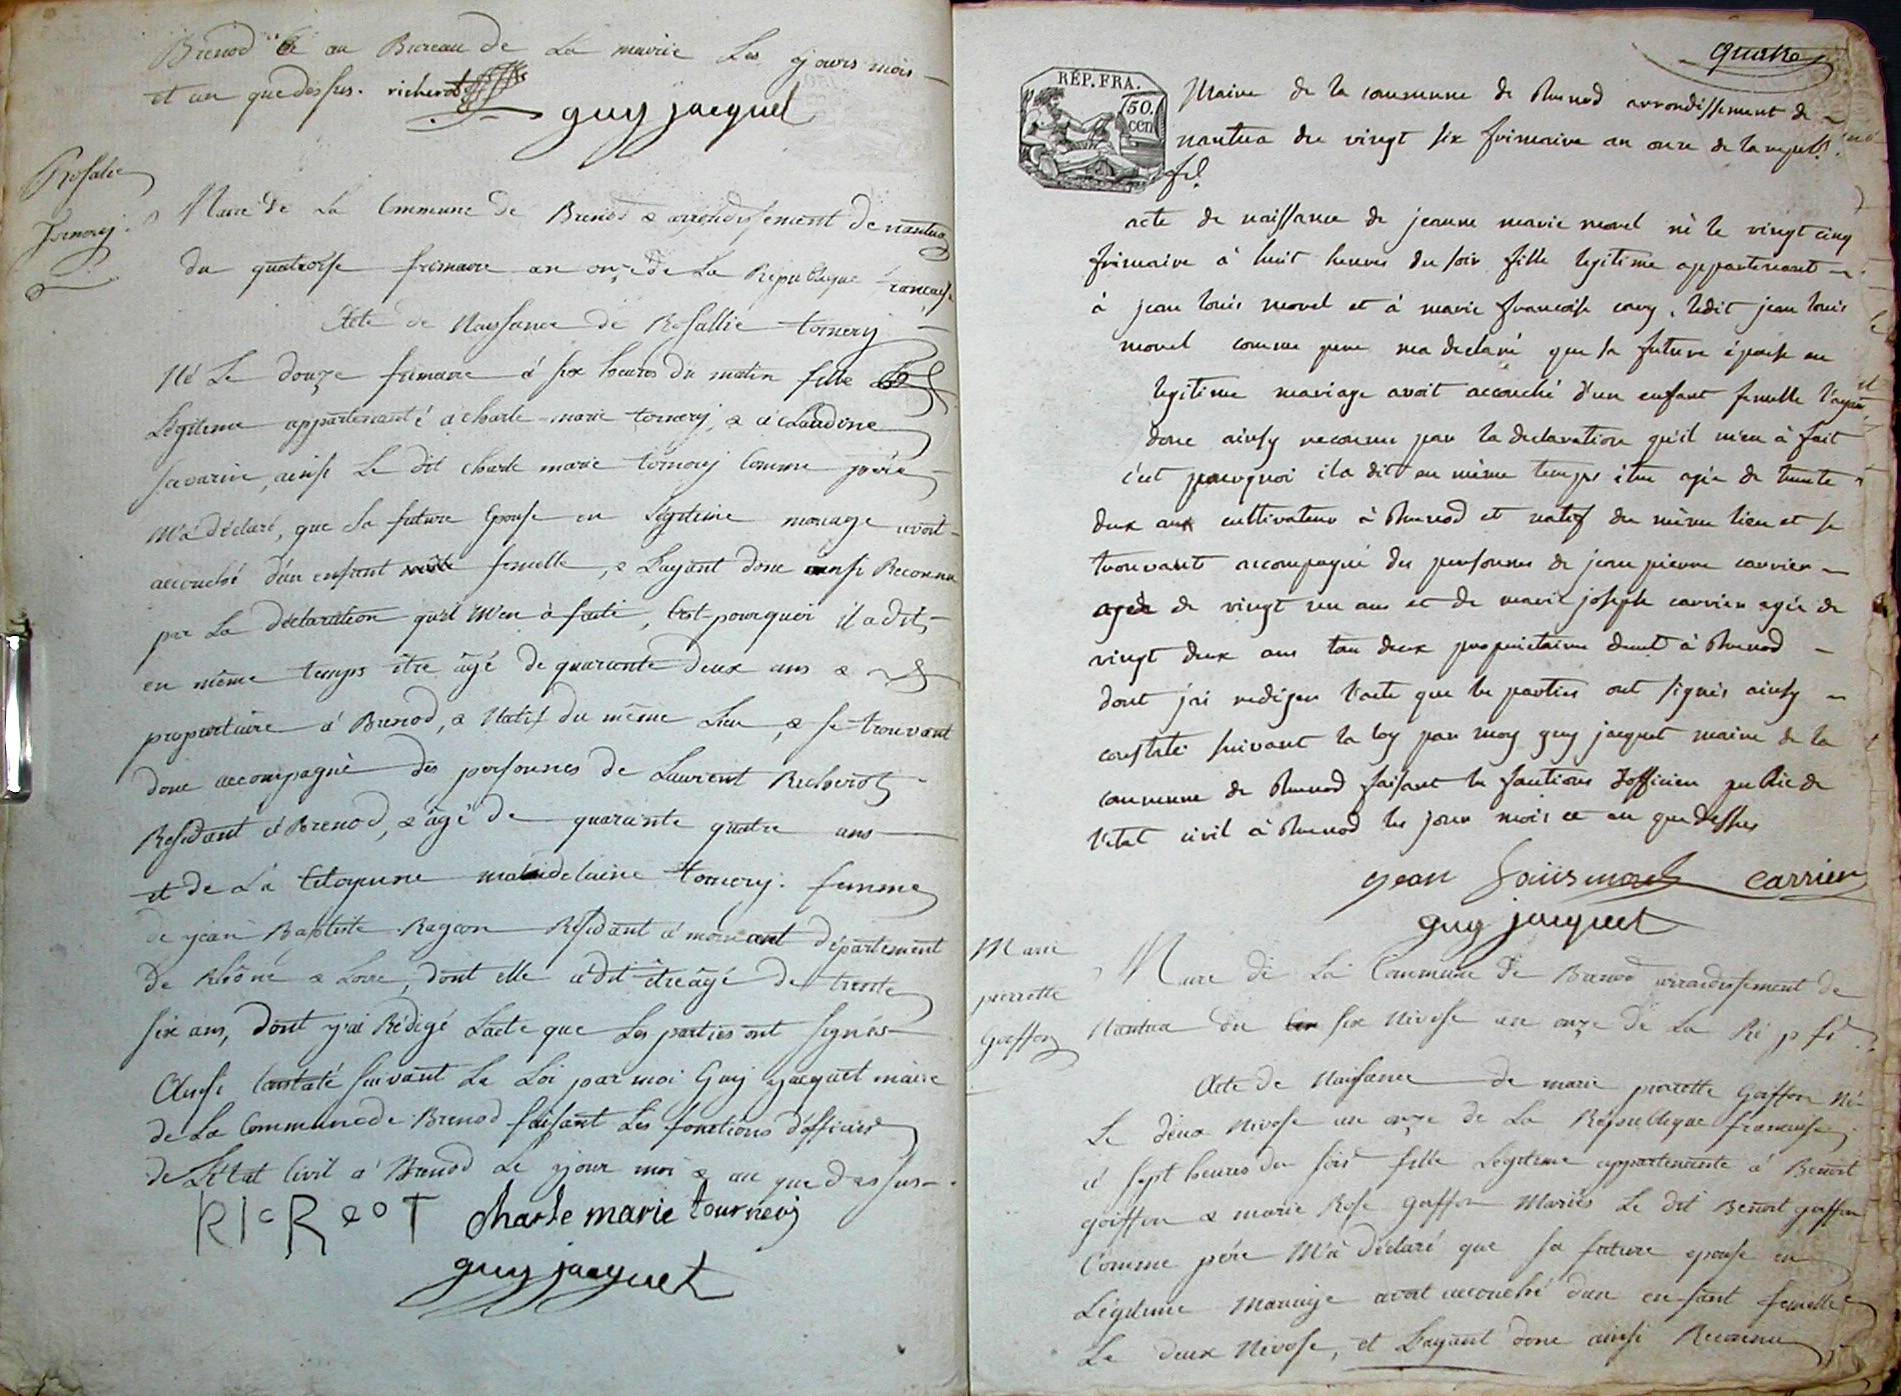 Brenod & au Bureau de La mairie Les jours mois
et an que dessus. richerot
guy jacquet
Rosalie
Tornery.
Maire de La Commune de Brenod & arrondissement de nantua
du quatorse frimaire an onze de La République francaise
Acte de Naissance de Rosallie tornery
Né Le douze frimaire á six heures du matin fille
Légitime appartenante á charle marie tornery, & á Claudine
savarin, ainsi Le dit charle marie tornery Comme père
M'a déclaré, que sa future Epouse en Légitime mariage avoit
accouché d'un enfant femelle, & L'ayant donc ainsi Reconnu
par La déclaration qu'il M'en à faite, C'est pourquoi il a dit
en même temps être âgé de quarante deux ans &
propriétaire á Brenod, & Natif du même Lieu, & se trouvant
donc accompagné des personnes de Laurent Richerot
Residant á Brenod, & âgé de quarante quatre ans
et de La Citoyenne madelaine tornery. femme
de jean Baptiste Rageon Résidant á mornant département
de Rhône & Loire, dont elle a dit être âgé de trente
six ans, dont j'ai Rédigé L'acte que Les parties ont signés
Ainsi Constaté suivant La Loi par moi Guy jacquet maire
de La Commune de Brenod faisant Les fonctions d'officier
de L'Etat Civil á Brenod Le jour moi & an que dessus.
charle marie tournery
guy jacquet
quatre
RÉP. FRA.
50.
cen
Maire de la commune de Brenod arrondissement de
nantua du vingt six frimaire an onze de la repub.
acte de naissance de jeanne marie morel né le vingt cinq
frimaire à huit heures du soir fille legitime appartenant
à jean louis morel et à marie francoise cary. ledit jean louis
morel comme pere ma declaré que sa future épouse en
legitime mariage avoit accouché d'un enfant femelle l'ayant
donc ainsy reconnu par la declaration qu'il m'en à fait
c'est pourquoi il a dit en même temps etre agée de trente
deux ans cultivateur à Brenod et natif du même lieu et se
trouvant accompagné des personnes de jean pierre carrier
agée de vingt un ans et de marie joseph carrier agée de
vingt deux ans tou deux proprietaires à Brenod
dont j'ai rediger l'acte que les parties ont signés ainsy
constaté suivant la loy par moy guy jacquet maire de la
commune de Brenod faisant les fontions d'officier public de
l'etat civil à Brenod les jour mois et an que dessus
jean Louis morel carrier
guy jacquet
Marie
pierrette
Goiffon
Maire de La Commune de Brenod arrondissement de
Nantua du six Nivose an onze de La Rép fr
Acte de Naissance de marie pierrette Goiffon Né
Le deux Nivose an onze de La République francaise
á sept heures du soir fille Légitime appartenante á Benoit
goiffon & marie Rose goiffon Mariés Le dit Benoit goiffon
Comme père M'a déclaré que sa future epouse en
Légitime Mariage avoit accouché d'un enfant femelle
Le deux Nivose, et L'ayant donc ainsi Reconnu